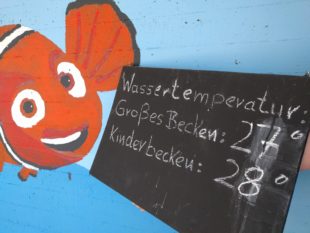 Wassertemperatur:
Großes Becken: 27°
Kinderbecken: 28°